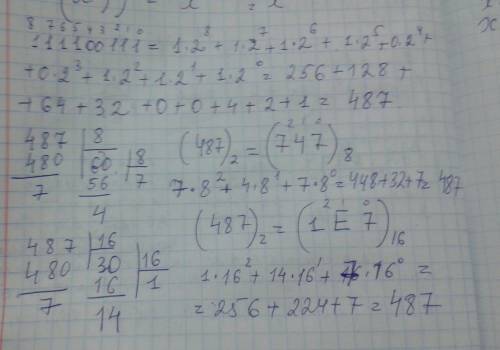 8 7 6 5 4 3 2 1 0
111100111 = 1·2⁸ + 1·2⁷ + 1·2⁶ + 1·2⁵ + 0·2⁴ +
+0·2³ + 1·2² + 1·2¹ + 1·2⁰ = 256 + 128 +
+ 64 + 32 + 0 + 0 + 4 + 2 + 1 = 487
487 | 8
480 | 60 | 8
7 56 7
4
(487)₂ = (7²4¹7⁰)₈
7·8² + 4·8¹ + 7·8⁰ = 448 + 32 + 7 = 487
(487)₂ = (1²E¹7⁰)₁₆
487 | 16
480 | 30 | 16
7 16 1
14
1·16² + 14·16¹ + 7·16⁰ =
= 256 + 224 + 7 = 487